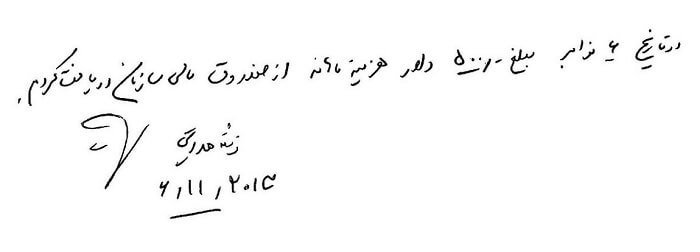 در تاریخ ۶ نوامبر مبلغ ۵۰۰۰/- دلار هزینه ماهانه از صندوق مالی سازمان دریافت کردم.
۶/۱۱/۲۰۱۳